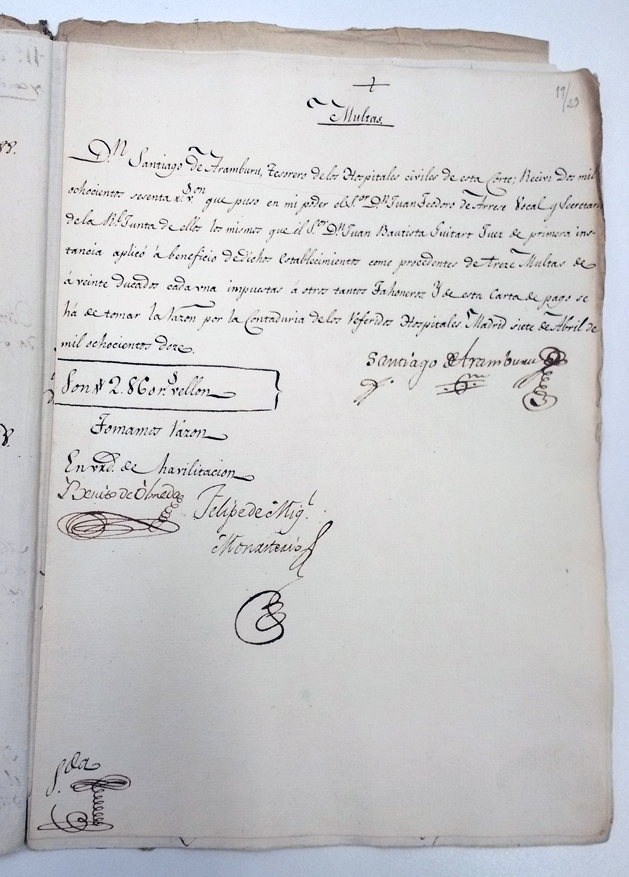 11/23
Multas.
Dn. Santiago de Aramburu, Tesorero de los Hospitales civiles de esta Corte; Recivi dos mil
ochocientos sesenta rs. von. que puso en mi poder el Sor. Dn. Juan Teodoro de Arrese Vocal y Secretario
de la Rl. Junta de ellos los mismos que el Sor. Dn. Juan Bautista Guitart Juez de primera ins-
tancia aplicó á beneficio de dichos establecimientos como procedentes de treze Multas de
á veinte ducados cada una impuestas á otros tantos Tahoneros. Y de esta Carta de pago se
há de tomar la razon por la Contaduria de los referidos Hospitales. Madrid siete de Abril de
mil ochocientos doze.
Santiago de Aramburu
Son 2.860 rs. vellon
Tomamos razon
En vrd. de havilitacion
Benito de Olmeda
Felipe de Migl.
Monasterio